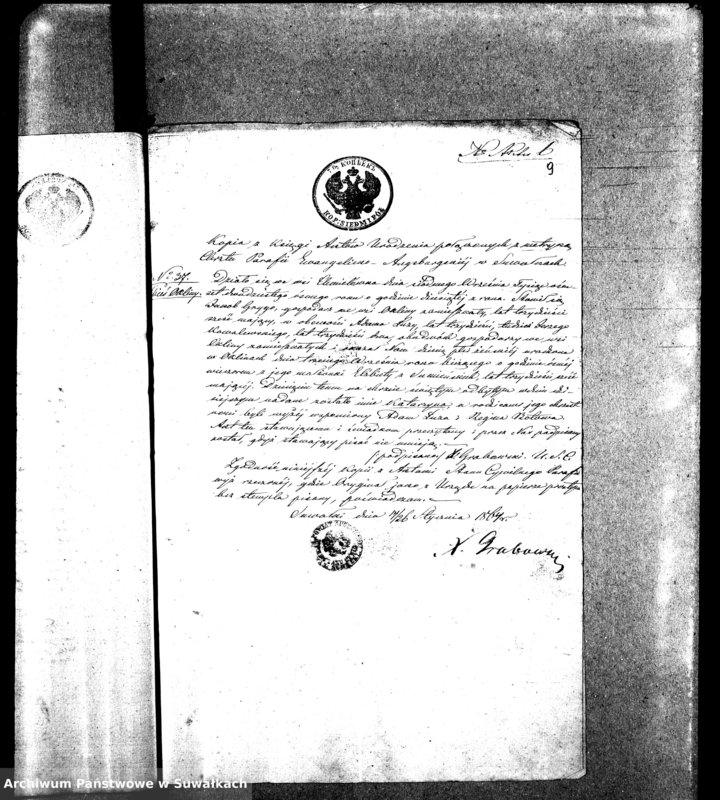 No Aktu 6
9
7½ КОПѢЕКЪ
KOP: SIEDM I PÓŁ
Kopia z Księgi Aktów Urodzenia połączonych z metryką
Chrztu Parafii Ewangelicko-Augsburgskiej w Suwałkach
No 37.
Wieś Okliny.
Działo się we wsi dnia siódmego Września Tysiąc ośm
set dwudziestego ósmego roku o godzinie dziesiątej z rana. Stawił się
Jakob gospodarz we wsi Okliny zamieszkały, lat trzydzieści
sześć mający, w obecności Adama lat trzydzieści, tudzież
Kowalewskiego, lat trzydzieści dwa, obudwóch gospodarzy we wsi
Okliny zamieszkałych i okazał Nam dziecię płci żeńskiej urodzone
w Oklinach dnia trzeciego Września roku bieżącego o godzinie ósmej
wieczorem z jego małżonki Elżbiety z lat trzydzieści
mającej. Dziecięciu temu na chrzcie świętym odbytym w dniu dzi
siejszym nadane zostało imie Katarzyna, a rodzicami jego chrzest
nemi byli wyżej wspomniony Adam i Regina
Akt ten stawającemu i świadkom przeczytany i przez Nas podpisany
został, gdyż stawający pisać nie umieją.
(podpisano) X Grabowski. U. S. C.
Zgodność niniejszej Kopii z Aktami Stanu Cywilnego Parafii
wyż rzeczonej, gdzie Oryginał jako z Urzędu na papierze prostym
bez stempla pisany, poświadczam.
Suwałki dnia 14/26 Stycznia 1864 r.
X. Grabowski
Archiwum Państwowe w Suwałkach